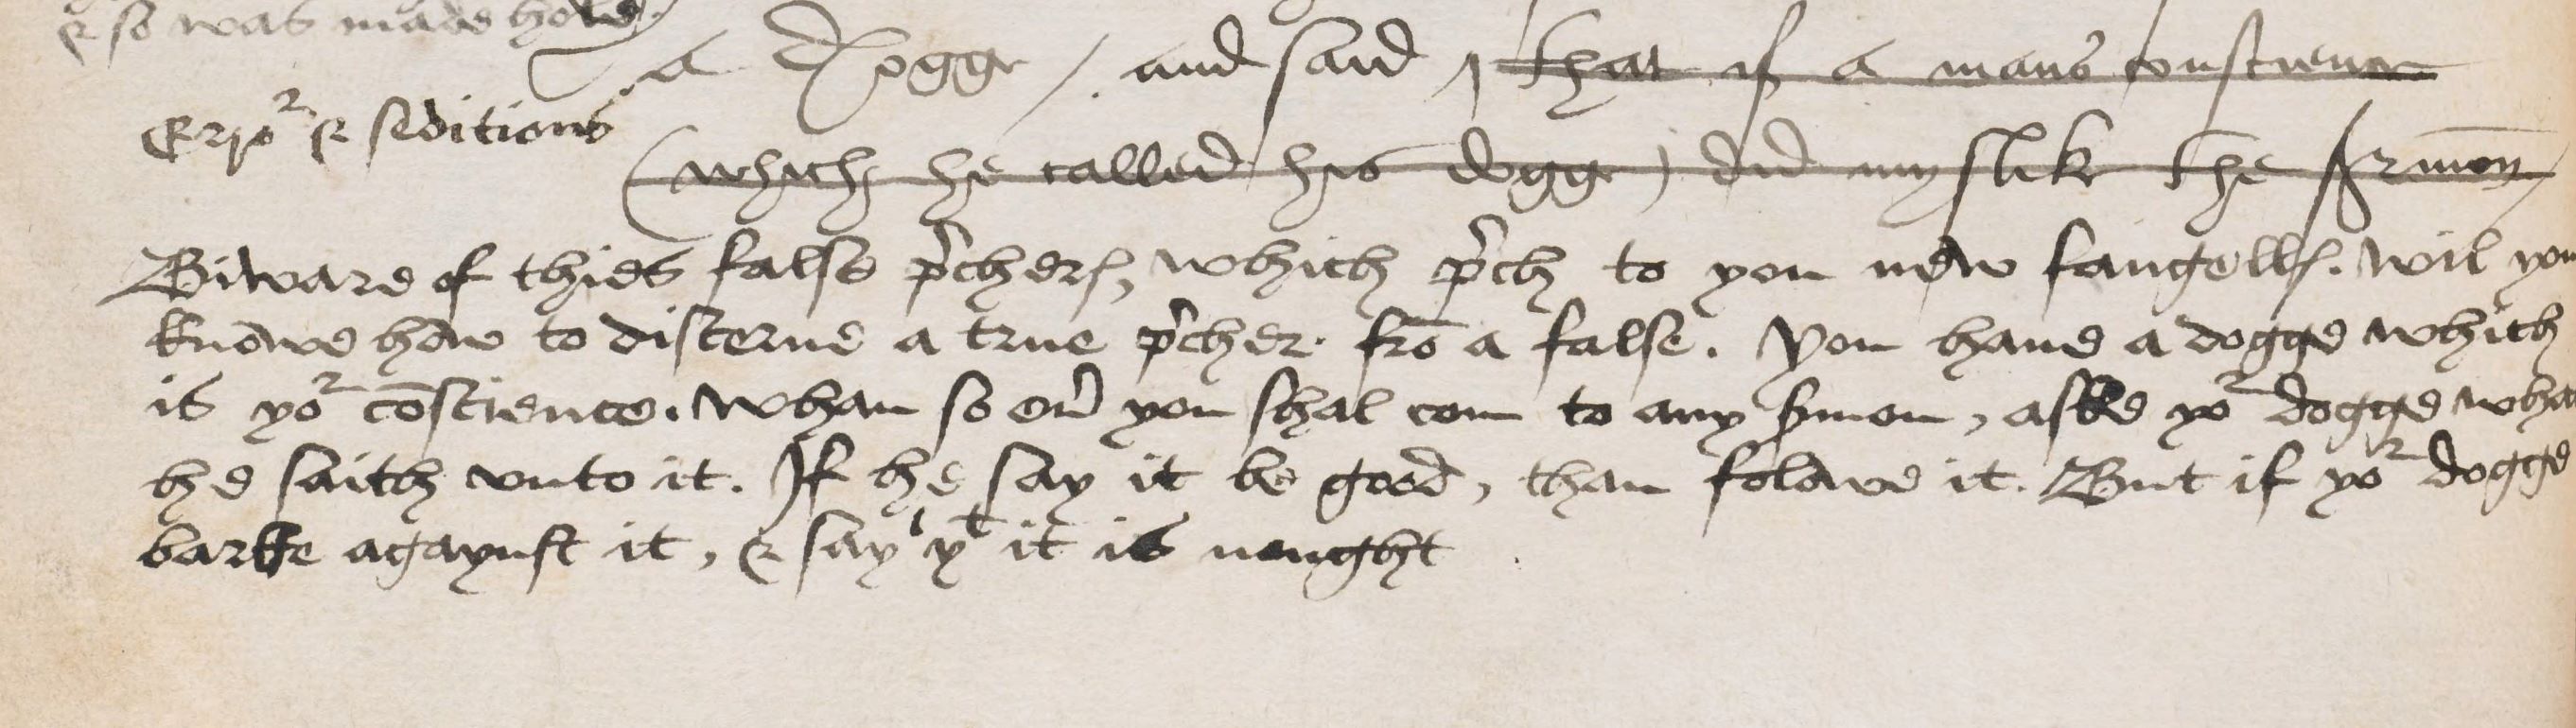 & so was made hole.
a Dogge / . and said , that if a mans conscience
Erro^r & seditious
(which he called his dogg) did myslike the sermōn
Biware of thies false p̄chers, which p̄ch to you new fangells. Wil you
knowe how to discerne a true p̄cher frō a false. You haue a dogge which
is yo^r cōscience. Whan so eu̾ you schal com to any s̾mon, aske yo^r dogge what
he saith vnto it. If he say it be good, than folowe it. But if yo^r dogge
barke agaynst it, & say y^t it is nought